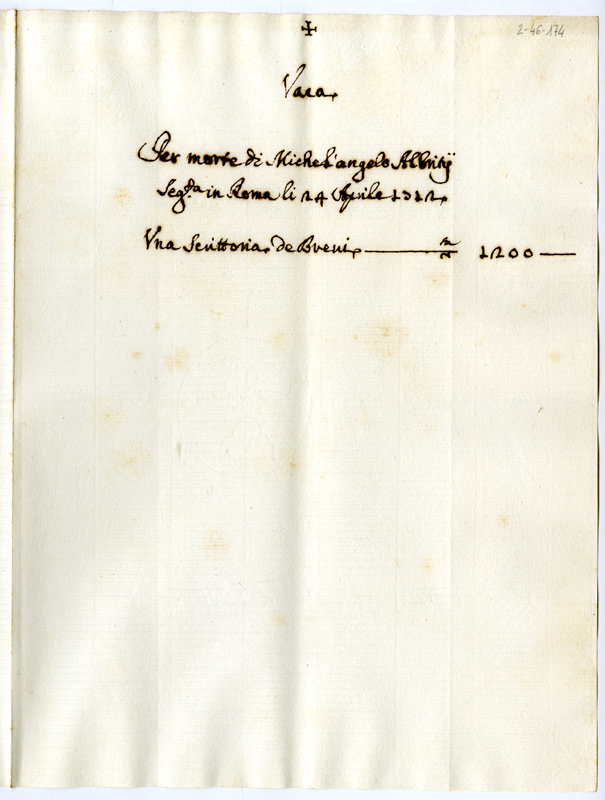 ✠
2-46-174
Vaca
Per morte di Michel'angelo Albritij
Seg.ta in Roma li 24 Aprile 1712
Una Scrittoria de Brevi — 1200 —